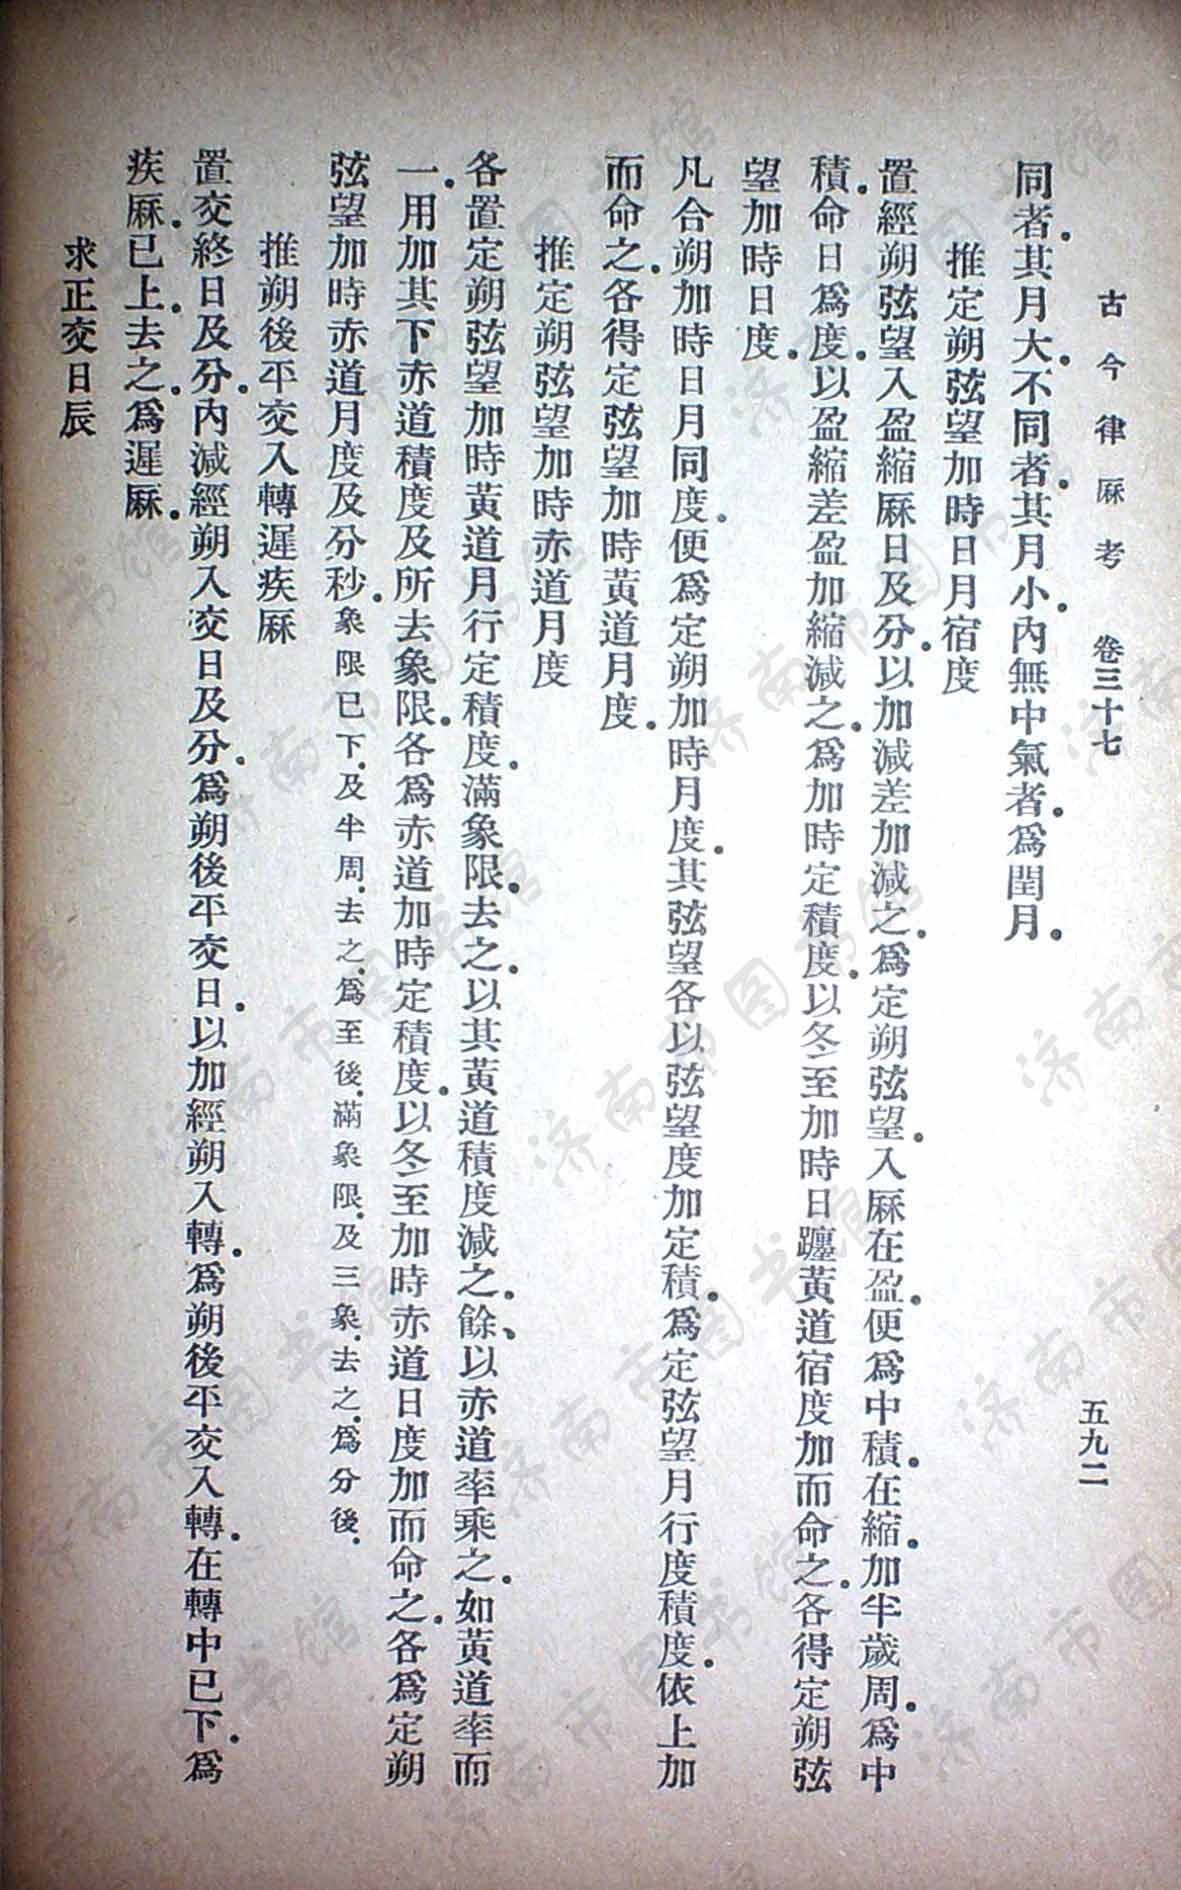 古今律厤考　卷三十七　五九二
同者．其月大．不同者．其月小．內無中氣者．爲閏月．
推定朔弦望加時日月宿度
置經朔弦望入盈縮厤日及分．以加減差加減之．爲定朔弦望．入厤在盈．便爲中積．在縮．加半歲周．爲中
積．命日爲度．以盈縮差盈加縮減之．爲加時定積度．以冬至加時日躔黃道宿度加而命之．各得定朔弦
望加時日度．
凡合朔加時日月同度．便爲定朔加時月度．其弦望各以弦望度加定積．爲定弦望月行度積度．依上加
而命之．各得定弦望加時黃道月度．
推定朔弦望加時赤道月度
各置定朔弦望加時黃道月行定積度．滿象限．去之．以其黃道積度減之．餘、以赤道率乘之．如黃道率而
一．用加其下赤道積度及所去象限．各爲赤道加時定積度．以冬至加時赤道日度加而命之．各爲定朔
弦望加時赤道月度及分秒．象限已下．及半周．去之．爲至後．滿象限．及三象．去之．爲分後．
推朔後平交入轉遲疾厤
置交終日及分．內減經朔入交日及分．爲朔後平交日．以加經朔入轉．爲朔後平交入轉．在轉中已下．爲
疾厤．已上．去之．爲遲厤．
求正交日辰
济南市图书馆